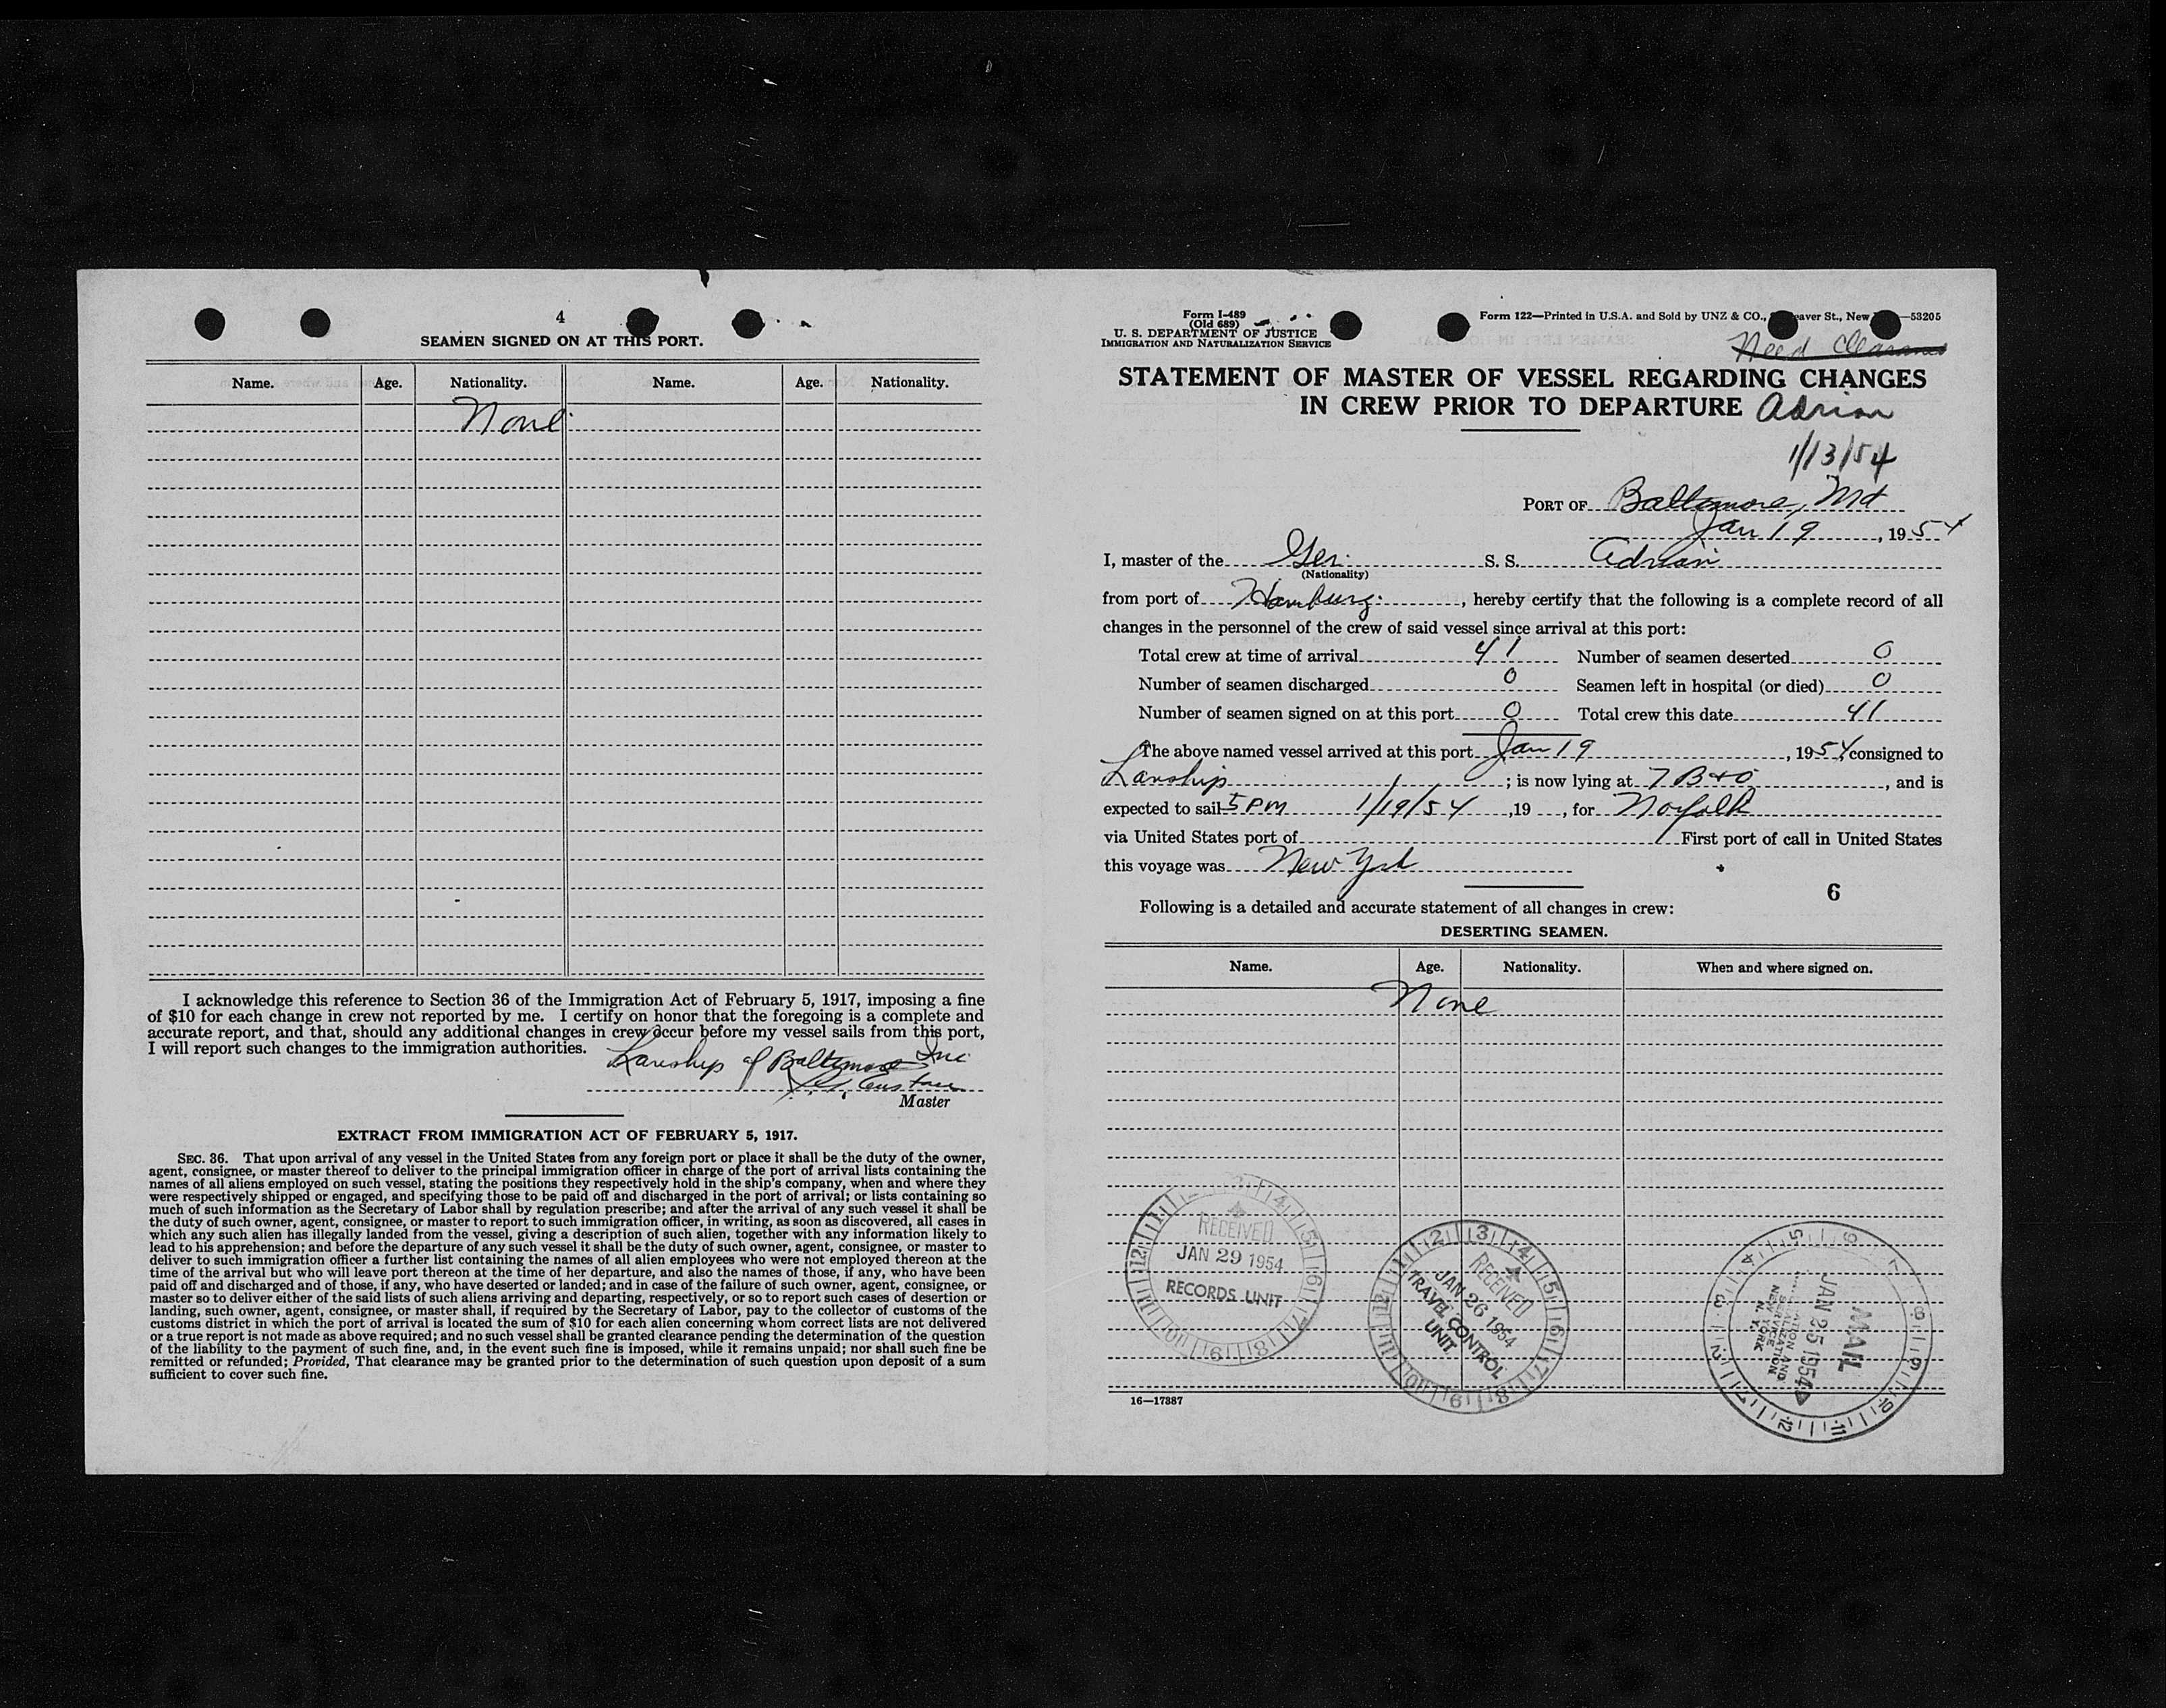 4
SEAMEN SIGNED ON AT THIS PORT.
Name. Age. Nationality. Name. Age. Nationality.
None
I acknowledge this reference to Section 36 of the Immigration Act of February 5, 1917, imposing a fine
of $10 for each change in crew not reported by me. I certify on honor that the foregoing is a complete and
accurate report, and that, should any additional changes in crew occur before my vessel sails from this port,
I will report such changes to the immigration authorities.
Lanship of Baltimore Inc
Master
EXTRACT FROM IMMIGRATION ACT OF FEBRUARY 5, 1917.
SEC. 36. That upon arrival of any vessel in the United States from any foreign port or place it shall be the duty of the owner,
agent, consignee, or master thereof to deliver to the principal immigration officer in charge of the port of arrival lists containing the
names of all aliens employed on such vessel, stating the positions they respectively hold in the ship's company, when and where they
were respectively shipped or engaged, and specifying those to be paid off and discharged in the port of arrival; or lists containing so
much of such information as the Secretary of Labor shall by regulation prescribe; and after the arrival of any such vessel it shall be
the duty of such owner, agent, consignee, or master to report to such immigration officer, in writing, as soon as discovered, all cases in
which any such alien has illegally landed from the vessel, giving a description of such alien, together with any information likely to
lead to his apprehension; and before the departure of any such vessel it shall be the duty of such owner, agent, consignee, or master to
deliver to such immigration officer a further list containing the names of all alien employees who were not employed thereon at the
time of the arrival but who will leave port thereon at the time of her departure, and also the names of those, if any, who have been
paid off and discharged and of those, if any, who have deserted or landed; and in case of the failure of such owner, agent, consignee, or
master so to deliver either of the said lists of such aliens arriving and departing, respectively, or so to report such cases of desertion or
landing, such owner, agent, consignee, or master shall, if required by the Secretary of Labor, pay to the collector of customs of the
customs district in which the port of arrival is located the sum of $10 for each alien concerning whom correct lists are not delivered
or a true report is not made as above required; and no such vessel shall be granted clearance pending the determination of the question
of the liability to the payment of such fine, and, in the event such fine is imposed, while it remains unpaid; nor shall such fine be
remitted or refunded; Provided, That clearance may be granted prior to the determination of such question upon deposit of a sum
sufficient to cover such fine.
Form I-489
(Old 689)
U. S. DEPARTMENT OF JUSTICE
IMMIGRATION AND NATURALIZATION SERVICE
Form 122—Printed in U.S.A. and Sold by UNZ & CO., eaver St., New —53205
Need
STATEMENT OF MASTER OF VESSEL REGARDING CHANGES
IN CREW PRIOR TO DEPARTURE Adrian
1/13/54
PORT OF Baltimore, Md
Jan 19, 1954
I, master of the Ger. S. S. Adrian
(Nationality)
from port of Hamburg, hereby certify that the following is a complete record of all
changes in the personnel of the crew of said vessel since arrival at this port:
Total crew at time of arrival 41 Number of seamen deserted 0
Number of seamen discharged 0 Seamen left in hospital (or died) 0
Number of seamen signed on at this port 0 Total crew this date 41
The above named vessel arrived at this port Jan 19, 1954, consigned to
Lanship; is now lying at 7 B+O, and is
expected to sail 5 PM 1/19/54, 19 , for Norfolk
via United States port of First port of call in United States
this voyage was New York
6
Following is a detailed and accurate statement of all changes in crew:
DESERTING SEAMEN.
Name. Age. Nationality. When and where signed on.
None
RECEIVED
JAN 29 1954
RECORDS UNIT
RECEIVED
JAN 26 1954
TRAVEL CONTROL
UNIT
MAIL
JAN 25 1954
SERVICE
NEW YORK
N. Y.
16—17887